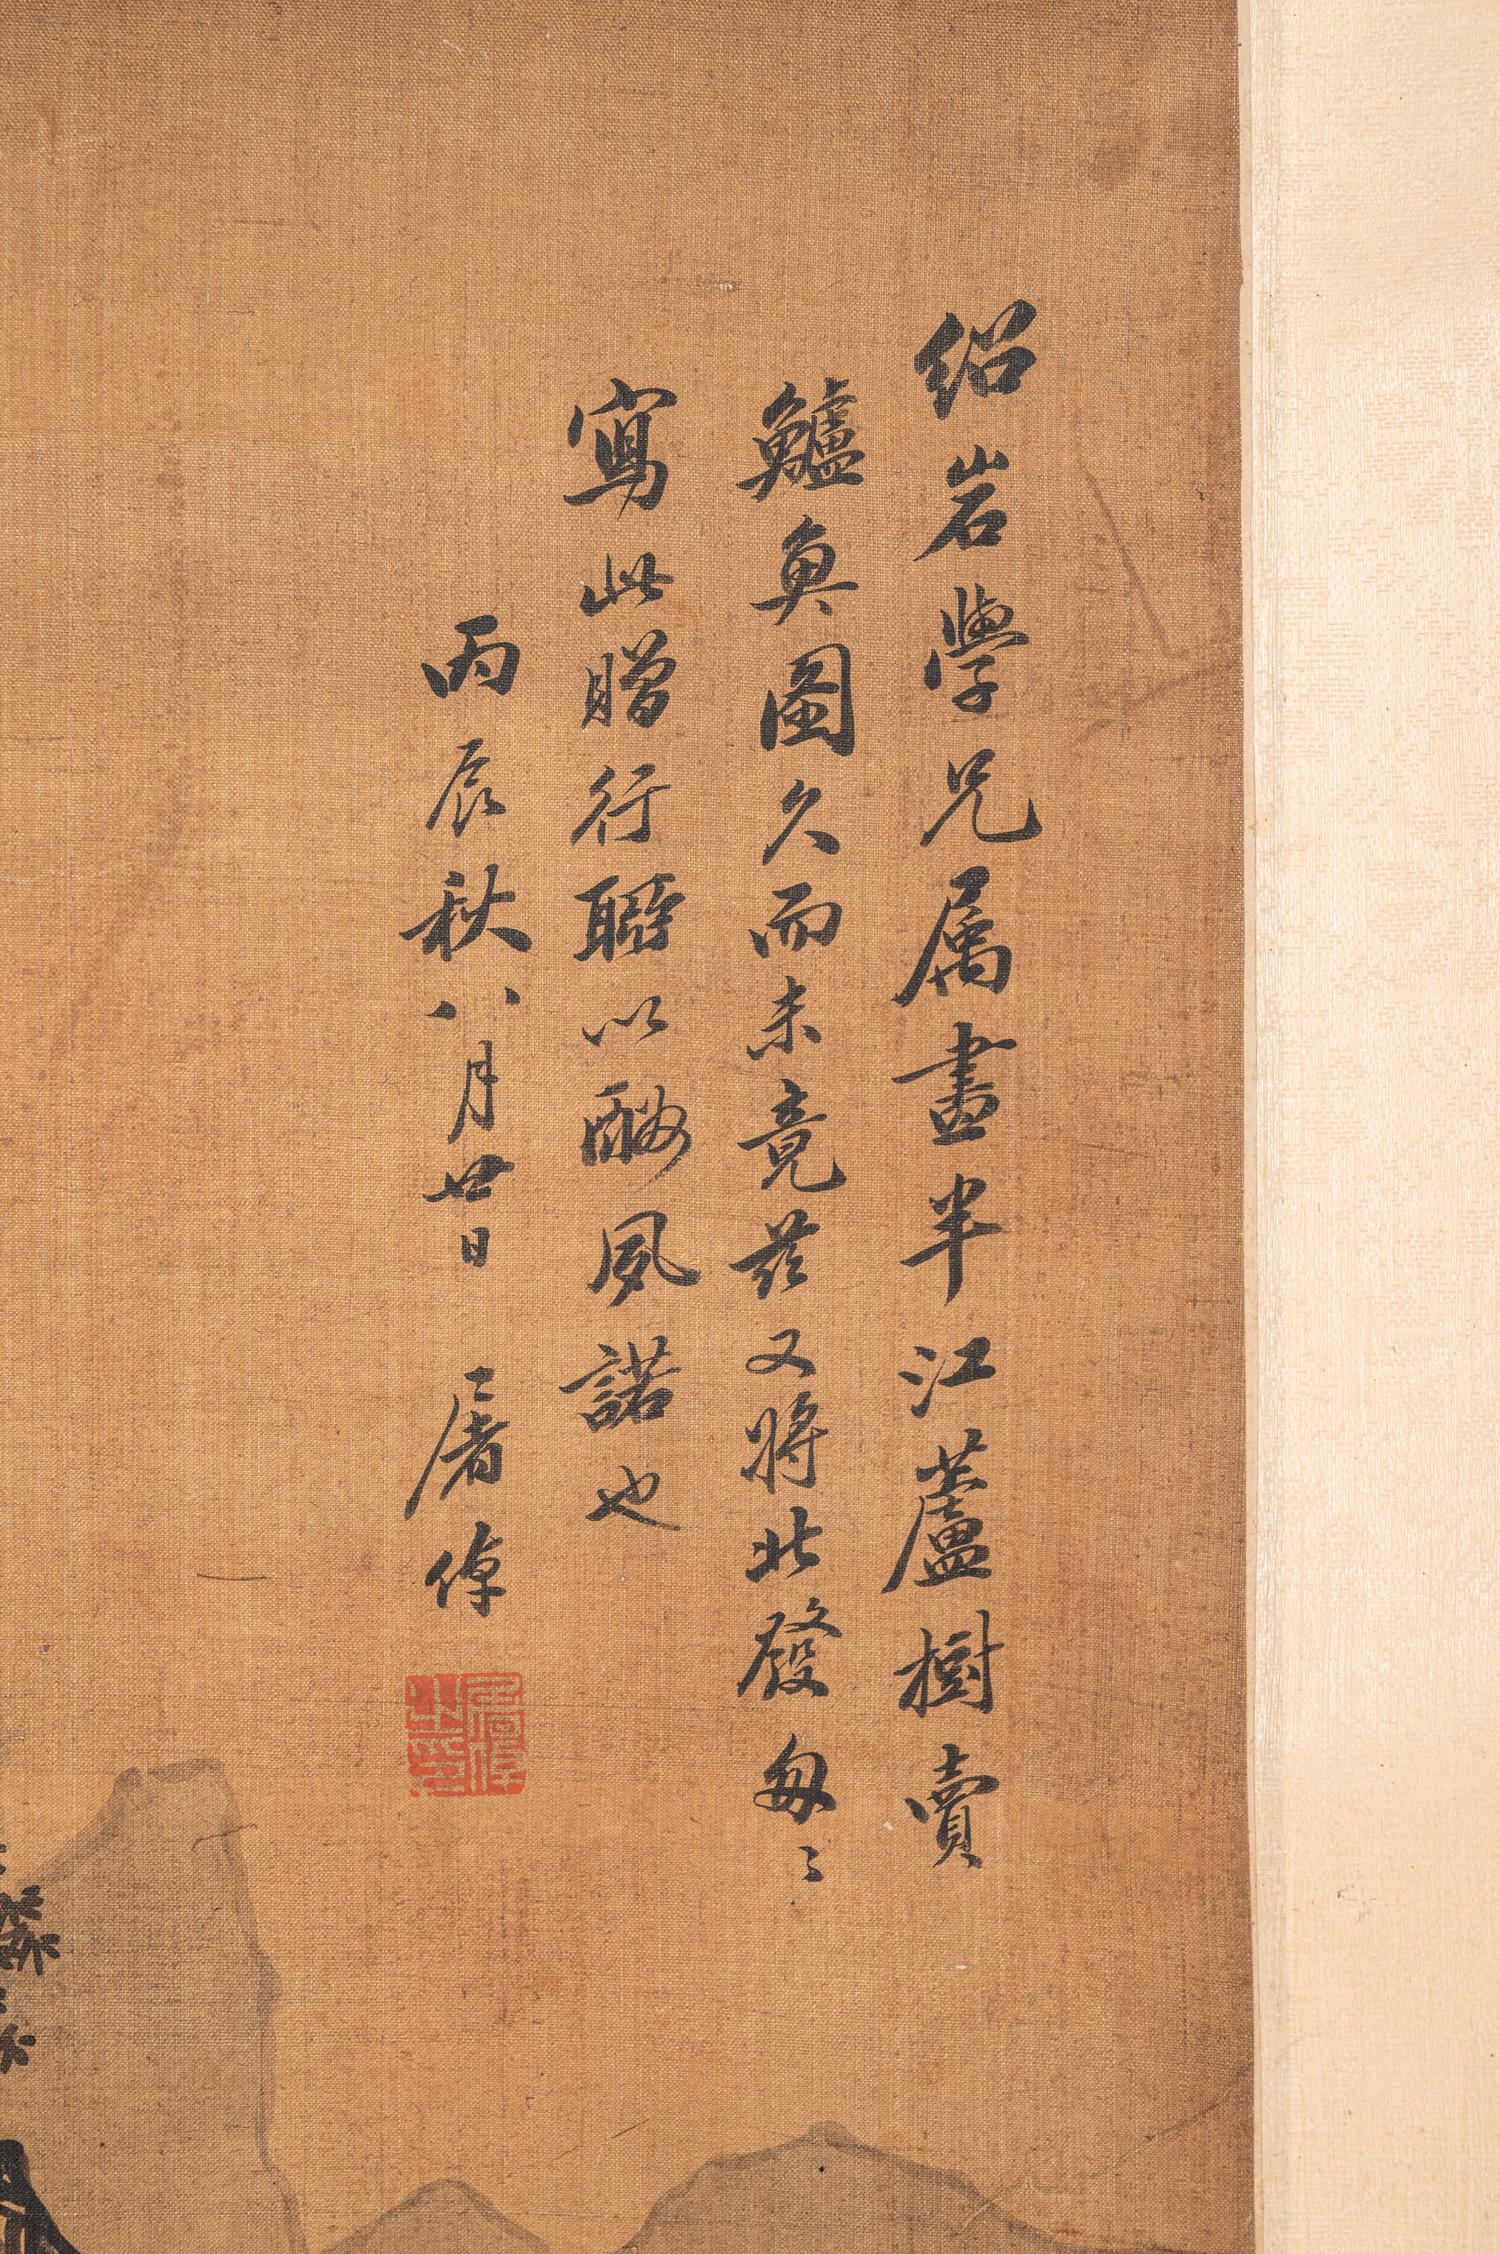 紹岩學兄属畫半江蘆樹賣
鱸魚圖久而未竟茲又將北發匆〻
寫此贈行聊以酬夙諾也
丙辰秋八月廿日 屠倬
屠倬之印